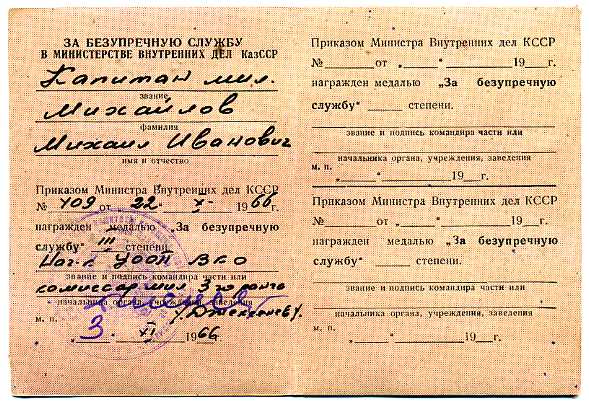 ЗА БЕЗУПРЕЧНУЮ СЛУЖБУ
В МИНИСТЕРСТВЕ ВНУТРЕННИХ ДЕЛ КазССР
Капитан мил.
звание
Михайлов
фамилия
Михаил Иванович
имя и отчество
Приказом Министра Внутренних дел КССР
№ 409 от 22. XI- 1966г.
награжден медалью „За безупречную
службу" III степени.
Нач-к УООП ВКО
звание и подпись командира части или
комиссар мил 3го ранга
начальника органа, учреждения, заведения
м. п.
„3" XII 1966г.
Приказом Министра Внутренних дел КССР
№ от „ " 19 г.
награжден медалью „За безупречную
службу" степени.
звание и подпись командира части или
начальника органа, учреждения, заведения
м. п.
„ " 19 г.
Приказом Министра Внутренних дел КССР
№ от „ " 19 г.
награжден медалью „За безупречную
службу" степени.
звание и подпись командира части или
начальника органа, учреждения, заведения
м. п.
„ " 19 г.